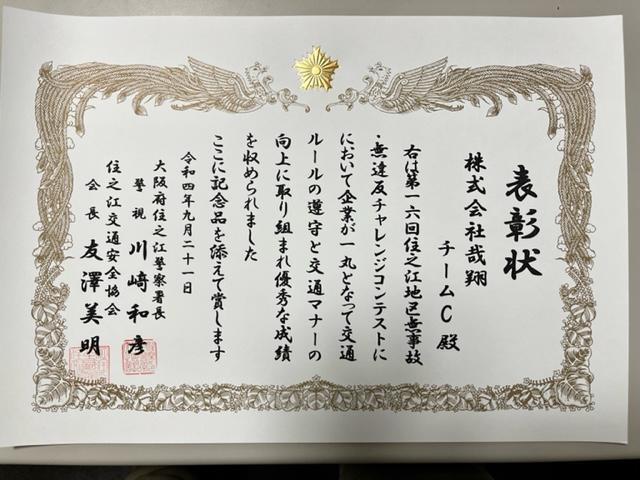 表彰状
株式会社哉翔
チームC 殿
右は第一六回住之江地区無事故
・無違反チャレンジコンテストに
おいて企業が一丸となって交通
ルールの遵守と交通マナーの
向上に取り組まれ優秀な成績
を収められました
ここに記念品を添えて賞します
令和四年九月二十一日
大阪府住之江警察署長
警視 川﨑和彦
住之江交通安全協会
会長 友澤美明